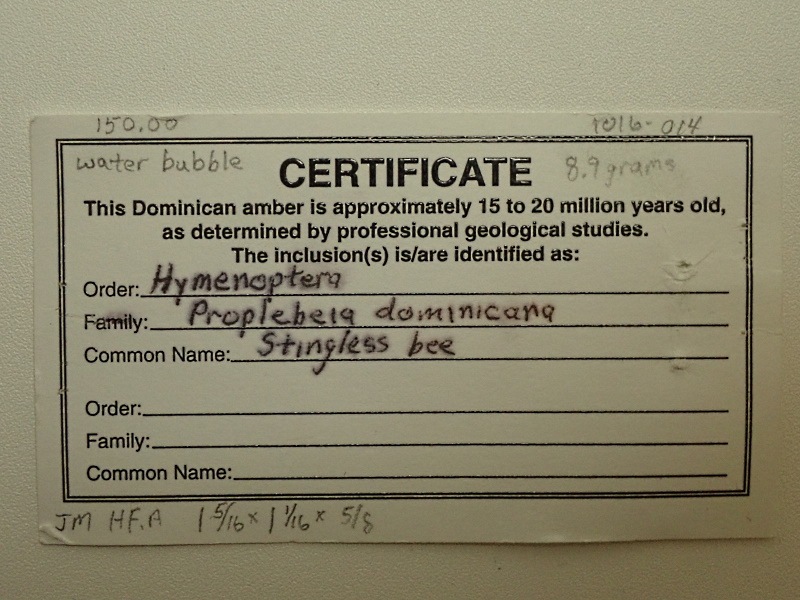 150.00 1016-014
water bubble CERTIFICATE 8.9 grams
This Dominican amber is approximately 15 to 20 million years old,
as determined by professional geological studies.
The inclusion(s) is/are identified as:
Order: Hymenoptera
Family: Proplebeia dominicana
Common Name: Stingless bee
Order:
Family:
Common Name:
JM HF.A 1 5/16 x 1 1/16 x 5/8